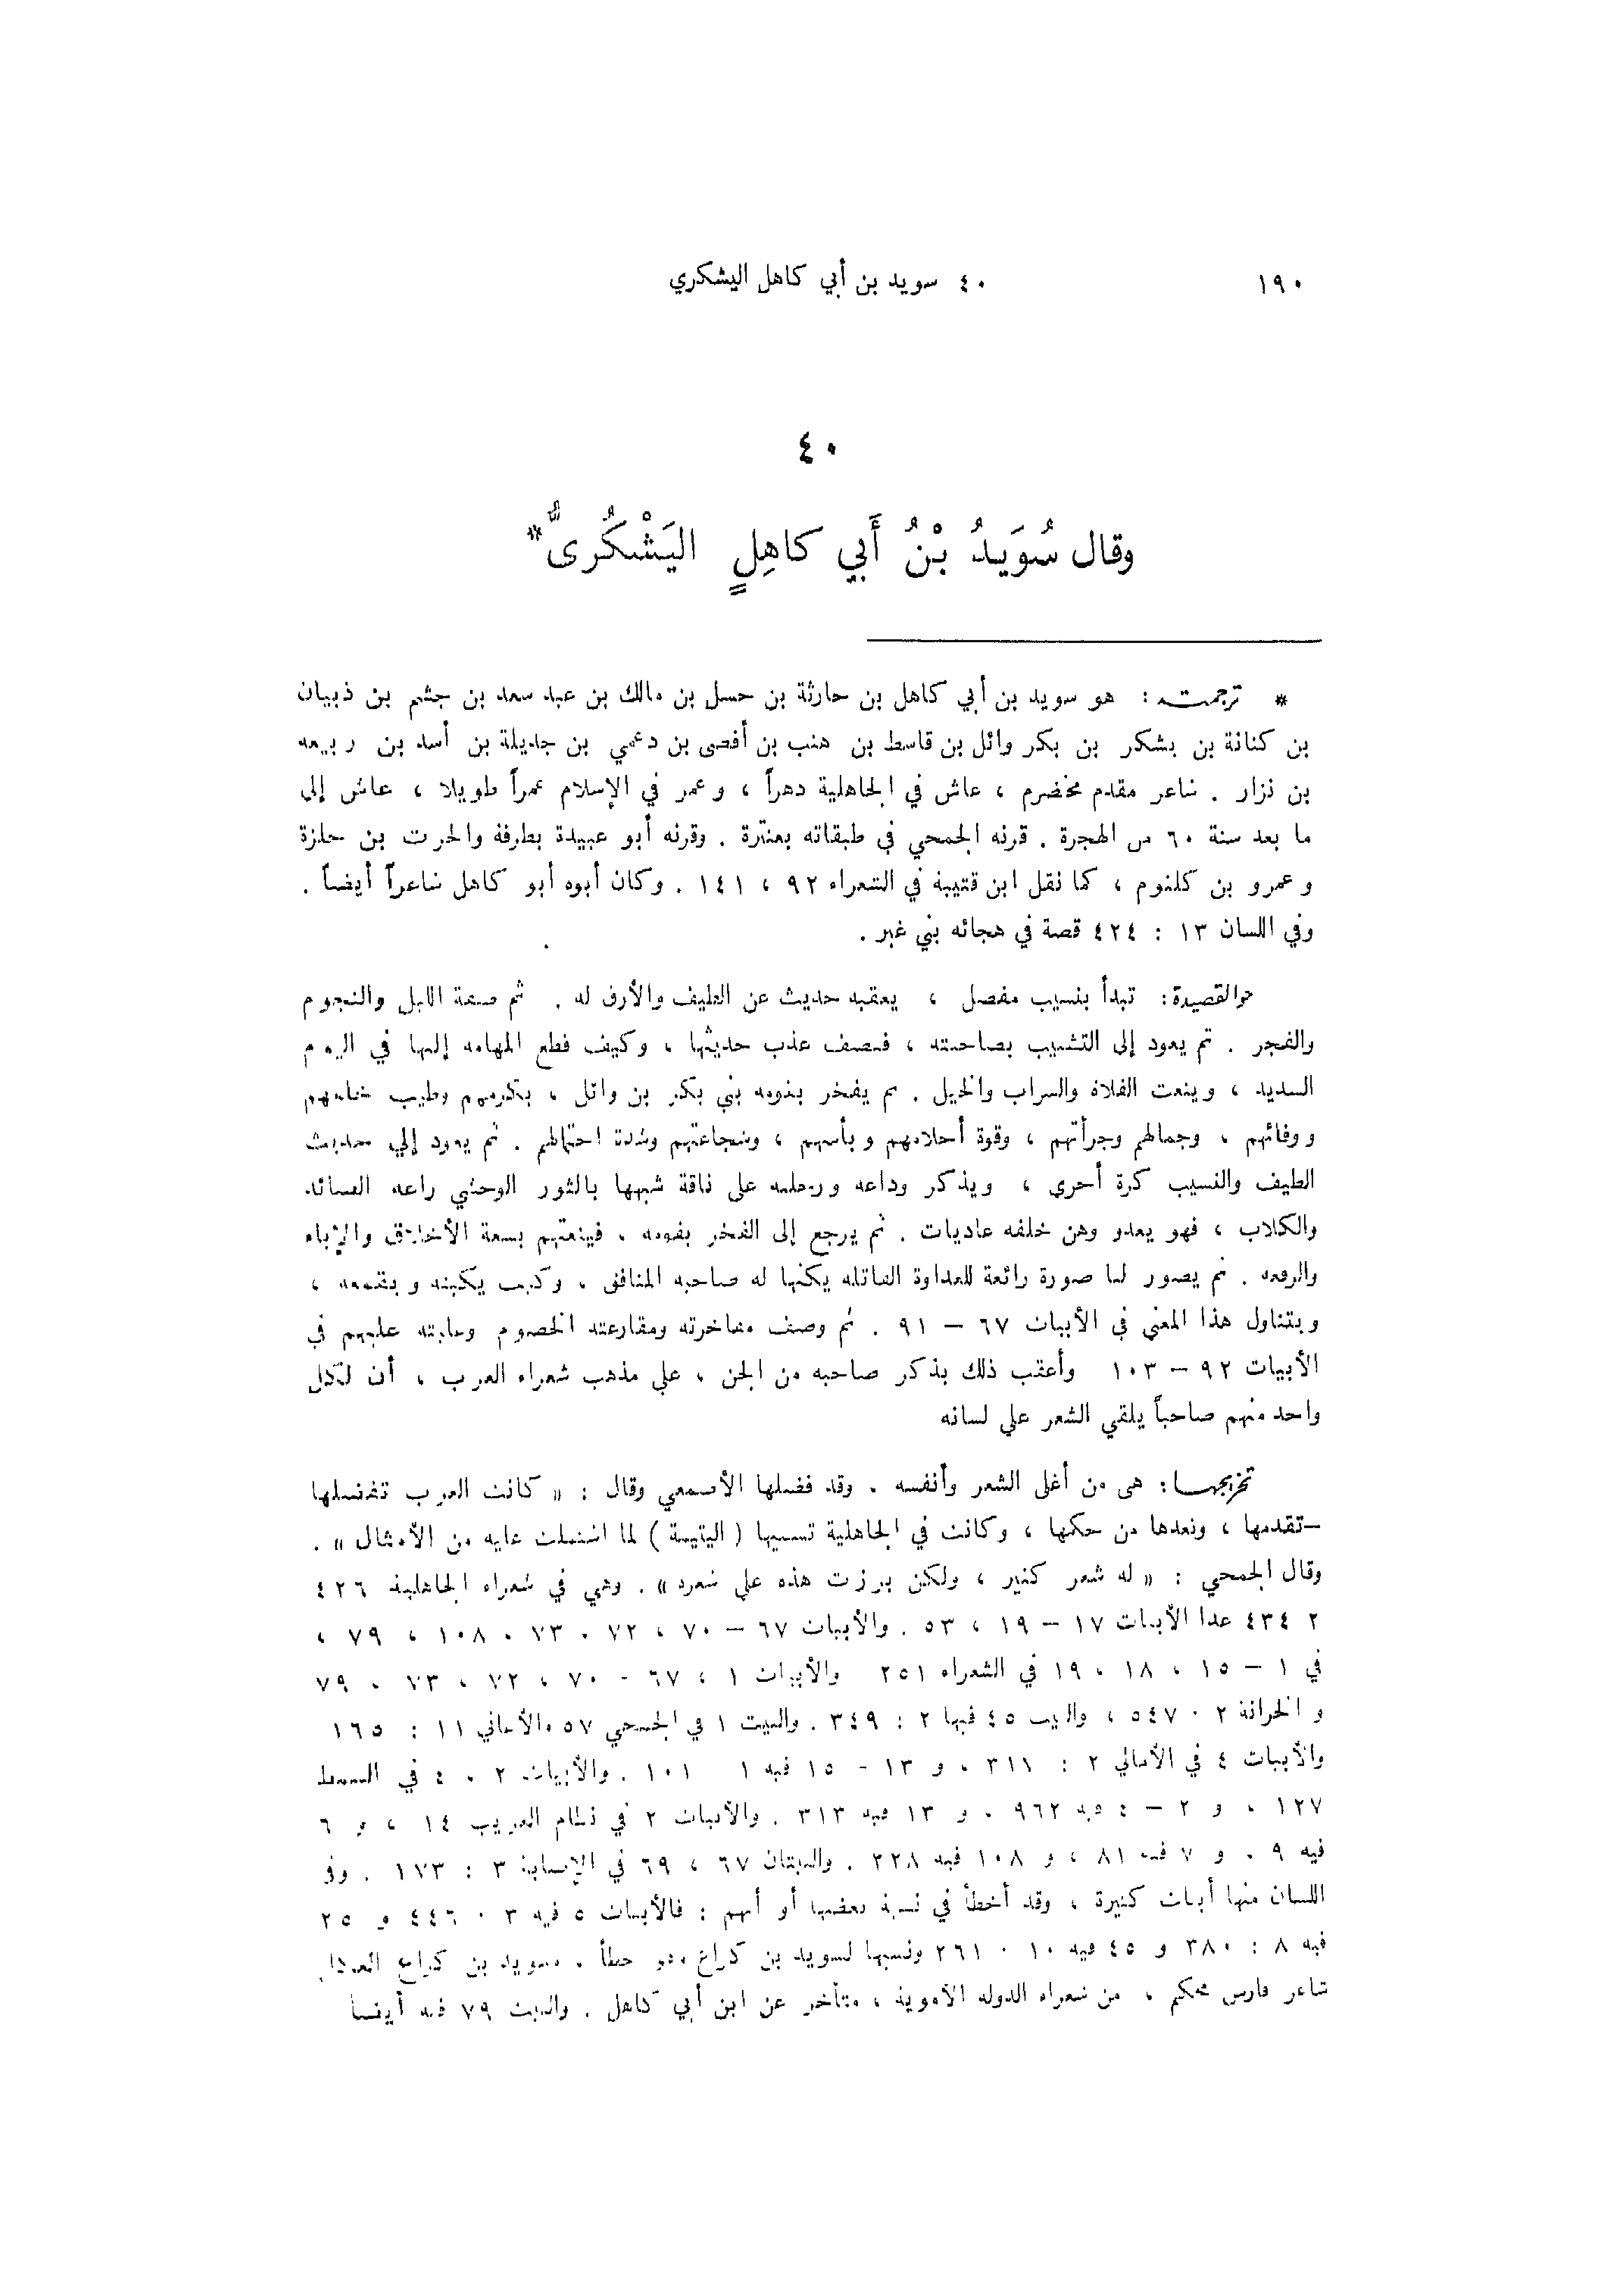 ١٩٠ ٤٠ سويد بن أبي كاهل اليشكري
٤٠
وقال سُوَيدُ بْنُ أَبي كاهِلٍ اليَشْكُرىُّ*
* ترجمته : هو سويد بن أبي كاهل بن حارثة بن حسل بن مالك بن عبد سعد بن جشم بن ذبيان
بن كنانة بن يشكر بن بكر وائل بن قاسط بن هنب بن أفصى بن دعمي بن جديلة بن أسد بن ربيعه
بن نزار . شاعر مقدم مخضرم ، عاش في الجاهلية دهراً ، وعمر في الإسلام عمراً طويلا ، عاش إلى
ما بعد سنة ٦٠ من الهجرة . قرنه الجمحي في طبقاته بعنترة . وقرنه أبو عبيدة بطرفة والحرث بن حلزة
وعمرو بن كلثوم ، كما نقل ابن قتيبة في الشعراء ٩٢ ، ١٤١ . وكان أبوه أبو كاهل شاعراً أيضاً .
وفي اللسان ١٣ : ٤٢٤ قصة في هجائه بني غبر .
جو القصيدة : تبدأ بنسيب مفصل ، يعقبه حديث عن الطيف والأرق له . ثم صفة الليل والنجوم
والفجر . ثم يعود إلى التشبيب بصاحبته ، فيصف عذب حديثها ، وكيف قطع المهامه إليها في اليوم
الشديد ، وينعت الفلاة والسراب والخيل . ثم يفخر بقومه بني بكر بن وائل ، بكرمهم وطيب
ووفائهم ، وجمالهم وجرأتهم ، وقوة أحلامهم وبأسهم ، وشجاعتهم وشدة احتمالهم . ثم يعود إلي حديث
الطيف والنسيب كرة أخرى ، ويذكر وداعه ورحلته على ناقة شبهها بالثور الوحشي راعه الصائد
والكلاب ، فهو يعدو وهن خلفه عاديات . ثم يرجع إلى الفخر بقومه ، فينعتهم بسعة الأخلاق والإباء
والرفعه . ثم يصور لنا صورة رائعة للعداوة القاتله يكنها له صاحبه المنافق ، وكيف يكبته ويقمعه ،
ويتناول هذا المعني في الأبيات ٦٧ – ٩١ . ثم وصف مفاخرته ومقارعته الخصوم وغلبته عليهم في
الأبيات ٩٢ – ١٠٣ وأعقب ذلك بذكر صاحبه من الجن ، علي مذهب شعراء العرب ، أن لكل
واحد منهم صاحباً يلقي الشعر علي لسانه
تخريجها : هى من أغلى الشعر وأنفسه . وقد فضلها الأصمعي وقال : « كانت العرب تفضلها
وتقدمها ، وتعدها من حكمها ، وكانت في الجاهلية تسميها ( اليتيمة ) لما اشتملت عليه من الأمثال » .
وقال الجمحي : « له شعر كثير ، ولكن برزت هذه علي شعره » . وهي في شعراء الجاهلية ٤٢٦
٢ ٤٣٤ عدا الأبيات ١٧ – ١٩ ، ٥٣ . والأبيات ٦٧ – ٧٠ ، ٧٢ ، ٧٣ ، ١٠٨ ، ٧٩ ،
في ١ – ١٥ ، ١٨ ، ١٩ في الشعراء ٢٥١ والأبيات ١ ، ٦٧ - ٧٠ ، ٧٢ ، ٧٣ ، ٧٩
و الخزانة ٢ . ٥٤٧ ، والبيت ٤٥ فيها ٢ : ٣٤٩ . والبيت ١ في الجمحي ٥٧ والأغاني ١١ : ١٦٥
والأبيات ٤ في الأمالي ٢ : ٣١١ ، و ١٣ - ١٥ فيه ١ ١٠١ . والأبيات ٢ ، ٤ في السمط
١٢٧ ، و ٢ – ٤ فيه ٩٦٢ ، و ١٣ فيه ٣١٣ . والأبيات ٢ في نظام الغريب ١٤ ، و ٦
فيه ٩ ، و ٧ فيه ٨١ ، و ١٠٨ فيه ٢٢٨ . والبيتان ٦٧ ، ٦٩ في الإصابة ٣ : ١٧٣ . وفي
اللسان منها أبيات كثيرة ، وقد أخطأ في نسبة بعضها أو أبهم : فالأبيات ٥ فيه ٣ . ٤٤٦ و ٢٥
فيه ٨ : ٣٨٠ و ٤٥ فيه ١٠ . ٢٦١ ونسبها لسويد بن كراع وهو خطأ ، وسويد بن كراع
شاعر فارس محكم ، من شعراء الدوله الأموية ، متأخر عن ابن أبي كاهل . والبيت ٧٩ فيه أيضا